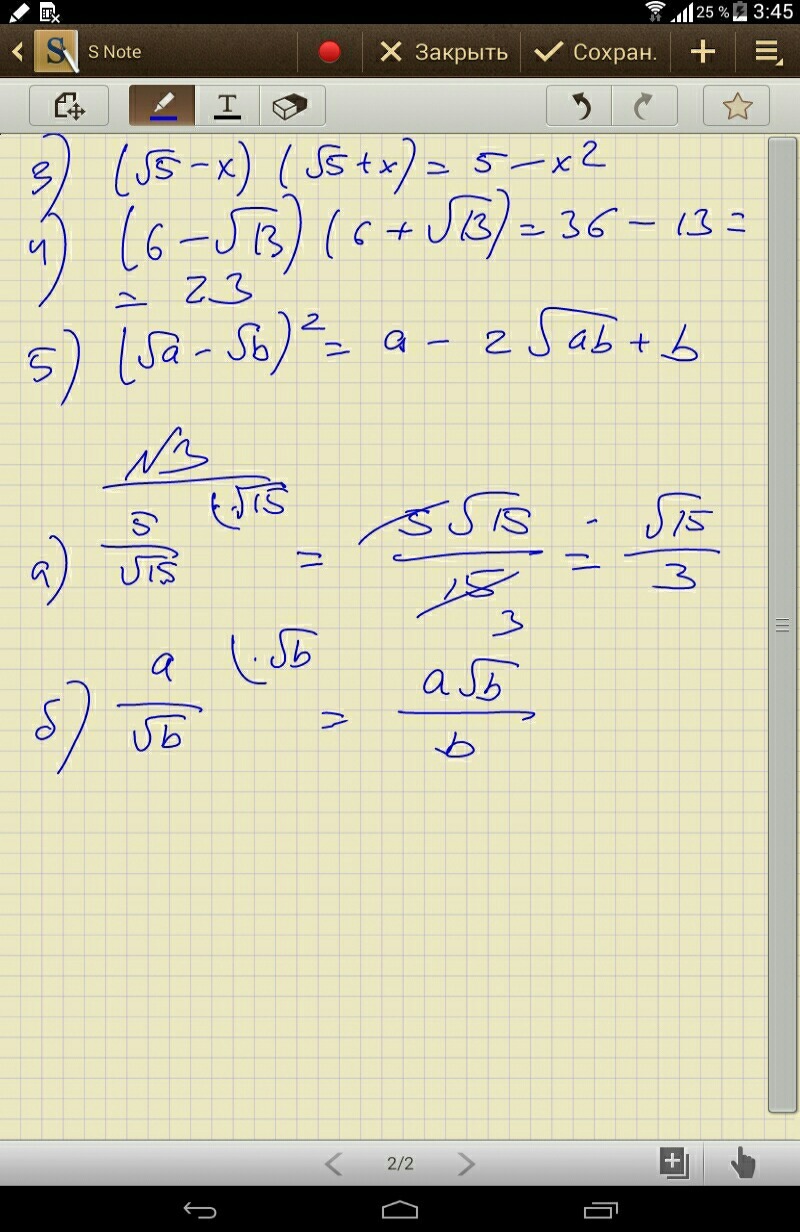 25 % 3:45
S Note Закрыть Сохран.
T
3) (√5 - x) (√5 + x) = 5 - x²
4) (6 - √13) (6 + √13) = 36 - 13 =
= 23
5) (√a - √b)² = a - 2√ab + b
N3
а) 5/√15 (·√15 = 5√15/15 = √15/3
3
б) a/√b (·√b = a√b/b
2/2